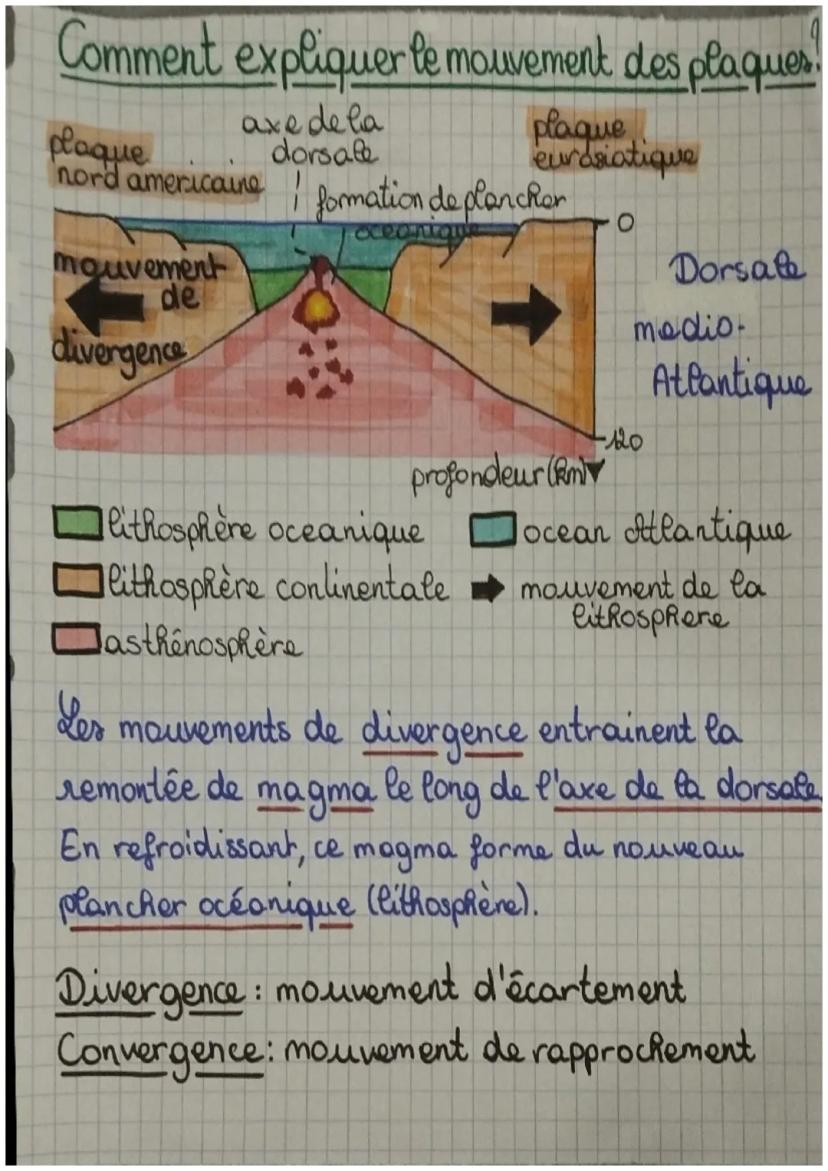 Comment expliquer le mouvement des plaques?
axe de la
dorsale
plaque
nord americaine
plaque
eurasiatique
formation de plancher
oceanique
0
mouvement
de
divergence
Dorsale
medio-
Atlantique
120
profondeur (km)
lithosphère oceanique
ocean Atlantique
lithosphère continentale
mouvement de la
lithosphere
asthénosphère
Les mouvements de divergence entrainent la
remontée de magma le long de l'axe de la dorsale.
En refroidissant, ce magma forme du nouveau
plancher océanique (lithosphère).
Divergence : mouvement d'écartement
Convergence : mouvement de rapprochement